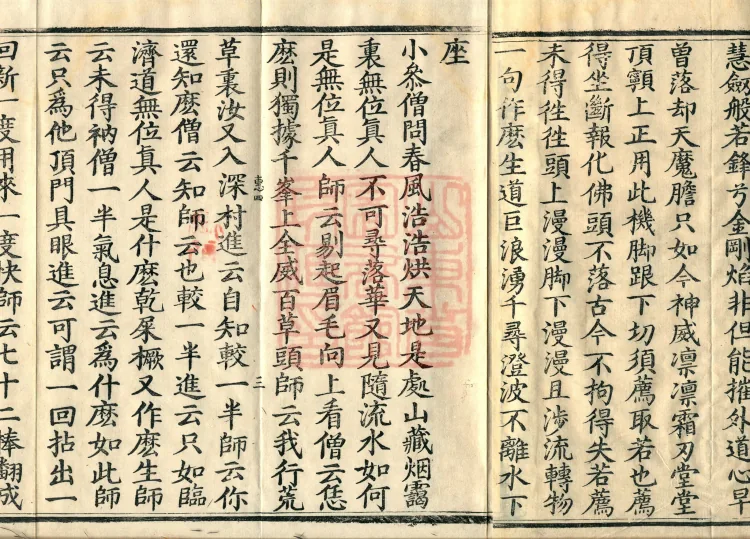 慧劒般若鋒兮金剛焰非但能摧外道心早
曾落却天魔膽只如今神威凛凛霜刃堂堂
頂𩕳上正用此機脚跟下切須薦取若也薦
得坐斷報化佛頭不落古今不拘得失若薦
未得徃徃頭上漫漫脚下漫漫且渉流轉物
一句作麽生道巨浪湧千尋澄波不離水下
座
小叅僧問春風浩浩烘天地是處山藏烟靄
裏無位眞人不可尋落華又見隨流水如何
是無位眞人師云剔起眉毛向上看僧云恁
麽則獨據千峯上全威百草頭師云我行荒
草裏汝又入深村進云自知較一半師云你
還知麽僧云知師云也較一半進云只如臨
濟道無位眞人是什麽乾屎橛又作麽生師
云未得衲僧一半氣息進云爲什麽如此師
云只爲他頂門具眼進云可謂一回拈出一
回新一度用來一度快師云七十二棒翻成
三